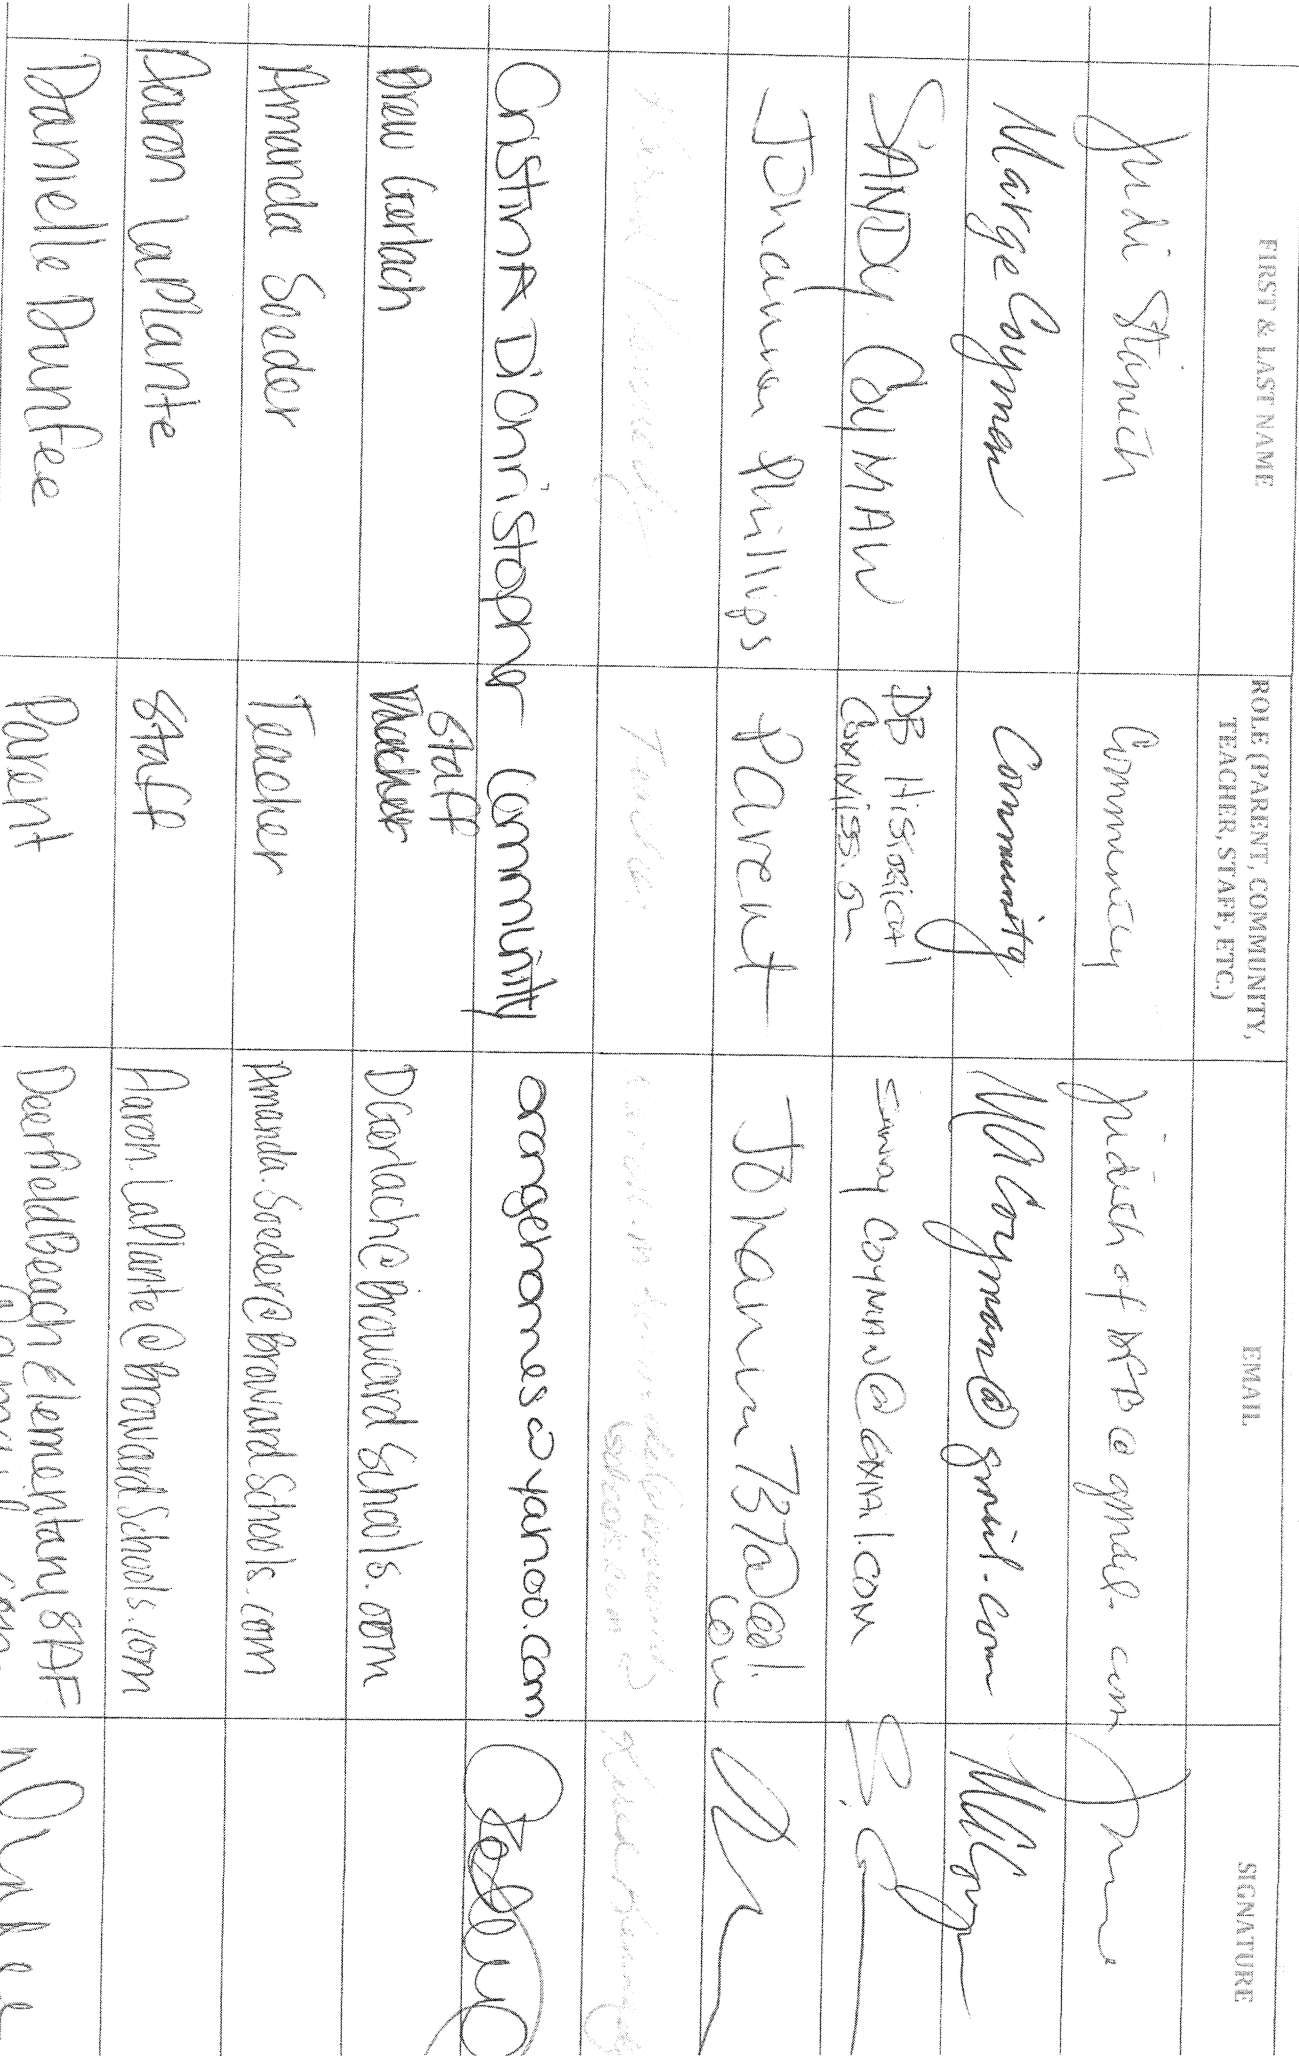 FIRST & LAST NAME
ROLE (PARENT, COMMUNITY,
TEACHER, STAFF, ETC.)
EMAIL
SIGNATURE
Judi Stanich
Community
judith of DFB@gmail.com
Marge Coyman
Community
MACoyman@gmail.com
SANDY COYMAN
DB Historical
Commission
SANDY COYMAN@GMAIL.COM
Johanna Phillips
Parent
Teacher
CristinA DiChristopher
Community
orangehomes@yahoo.com
Drew Gerlach
Staff
DGerlach@BrowardSchools.com
Amanda Soeder
Teacher
Amanda.Soeder@BrowardSchools.com
Aaron LaPlante
Staff
Aaron.LaPlante@BrowardSchools.com
Danielle Dunfee
Parent
DeerfieldBeachElementarySAF
@gmail.com